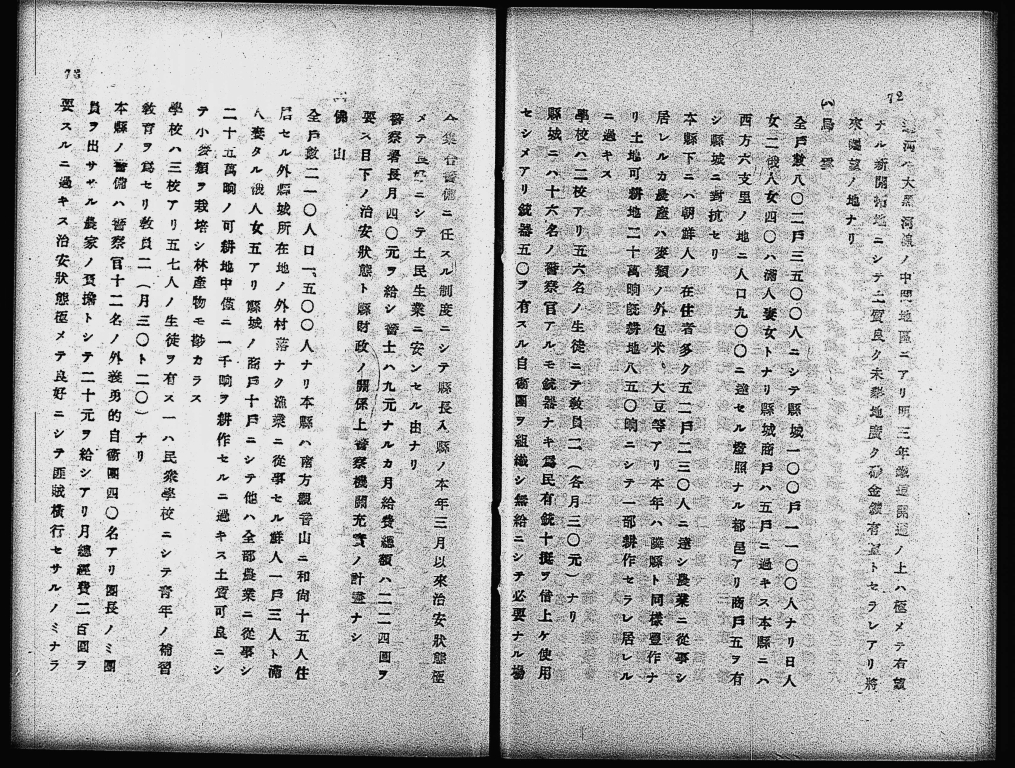 72
海ト大黒河流ノ中間地區ニアリ明三年鐵道開通ノ上ハ極メテ有望
ナル新開拓地ニシテ土質良ク未墾地廣ク砂金鑛有望トセラレアリ將
來囑望ノ地ナリ
烏雲
全戸數八〇二戸三五〇〇人ニシテ縣城一〇〇戸一一〇〇人ナリ日人
女二俄人女四〇ハ滿人妻女トナリ縣城商戸ハ五戸ニ過キス本縣ニハ
西方六支里ノ地ニ人口九〇〇ニ達セル燈照ナル部邑アリ商戸五ヲ有
シ縣城ニ對抗セリ
本縣下ニハ朝鮮人ノ在住者多ク五二戸二三〇人ニ達シ農業ニ從事シ
居レルカ農產ハ麥類ノ外包米、大豆等アリ本年ハ隣縣ト同樣豐作ナ
リ土地可耕地二十萬晌旣耕地八五〇晌ニシテ一部耕作セラレ居レル
ニ過キス
學校ハ二校アリ五六名ノ生徒ニテ敎員二(各月三〇元)ナリ
縣城ニハ十六名ノ警察官アルモ銃器ナキ爲民有銃十挺ヲ借上ケ使用
セシメアリ銃器五〇ヲ有スル自衞團ヲ組織シ無給ニシテ必要ナル場
78
合集合警備ニ任スル制度ニシテ縣長入縣ノ本年三月以來治安狀態極
メテ良好ニシテ土民生業ニ安ンセル由ナリ
警察署長月四〇元ヲ給シ警士ハ九元ナルカ月給費總額ハ二二四圓ヲ
要ス目下ノ治安狀態ト縣財政ノ關係上警察機關充實ノ計畫ナシ
佛山
全戸數二一〇人口一、五〇〇人ナリ本縣ハ南方觀音山ニ和尙十五人住
居セル外縣城所在地ノ外村落ナク漁業ニ從事セル鮮人一戸三人ト滿
人妻タル俄人女五アリ縣城ノ商戸十戸ニシテ他ハ全部農業ニ從事シ
二十五萬晌ノ可耕地中僅ニ一千晌ヲ耕作セルニ過キス土質可良ニシ
テ小麥類ヲ栽培シ林產物モ尠カラス
學校ハ三校アリ五七人ノ生徒ヲ有ス一ハ民衆學校ニシテ靑年ノ補習
敎育ヲ爲セリ敎員二(月三〇ト二〇)ナリ
本縣ノ警備ハ警察官十二名ノ外義勇的自衞團四〇名アリ團長ノミ團
員ヲ出ササル農家ノ負擔トシテ二十元ヲ給シアリ月總經費二百圓ヲ
要スルニ過キス治安狀態極メテ良好ニシテ匪賊橫行セサルノミナラ